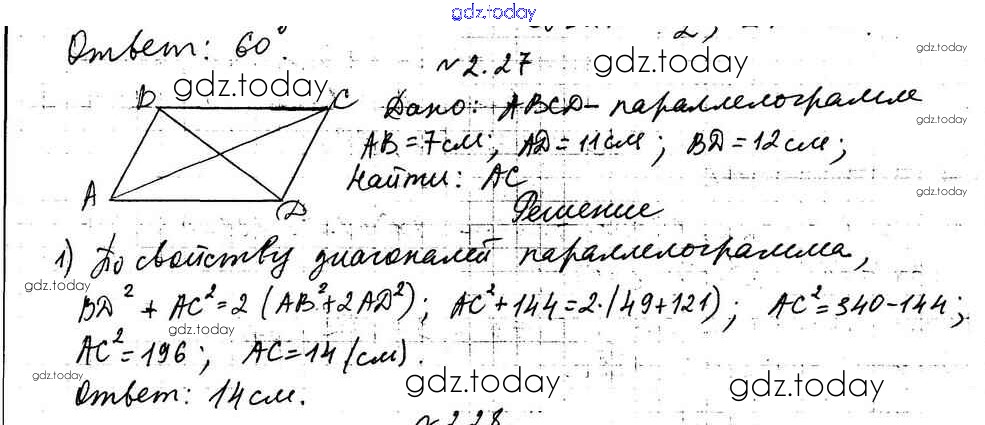 gdz.today
Ответ: 60°.
№2.27
gdz.today
gdz.today
gdz.today
B C
A D
Дано: ABCD - параллелограмм
gdz.today
AB = 7см; AD = 11см; BD = 12см;
Найти: AC
gdz.today
Решение
1) По свойству диагоналей параллелограмма,
gdz.today
BD² + AC² = 2 (AB² + 2AD²); AC² + 144 = 2·(49 + 121); AC² = 340 - 144;
gdz.today
AC² = 196; AC = 14 (см).
gdz.today
gdz.today
gdz.today
Ответ: 14 см.
№2.28